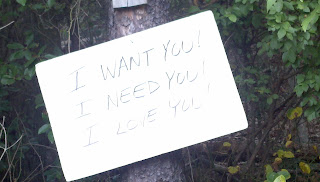 I WANT YOU!
I NEED YOU!
I LOVE YOU!